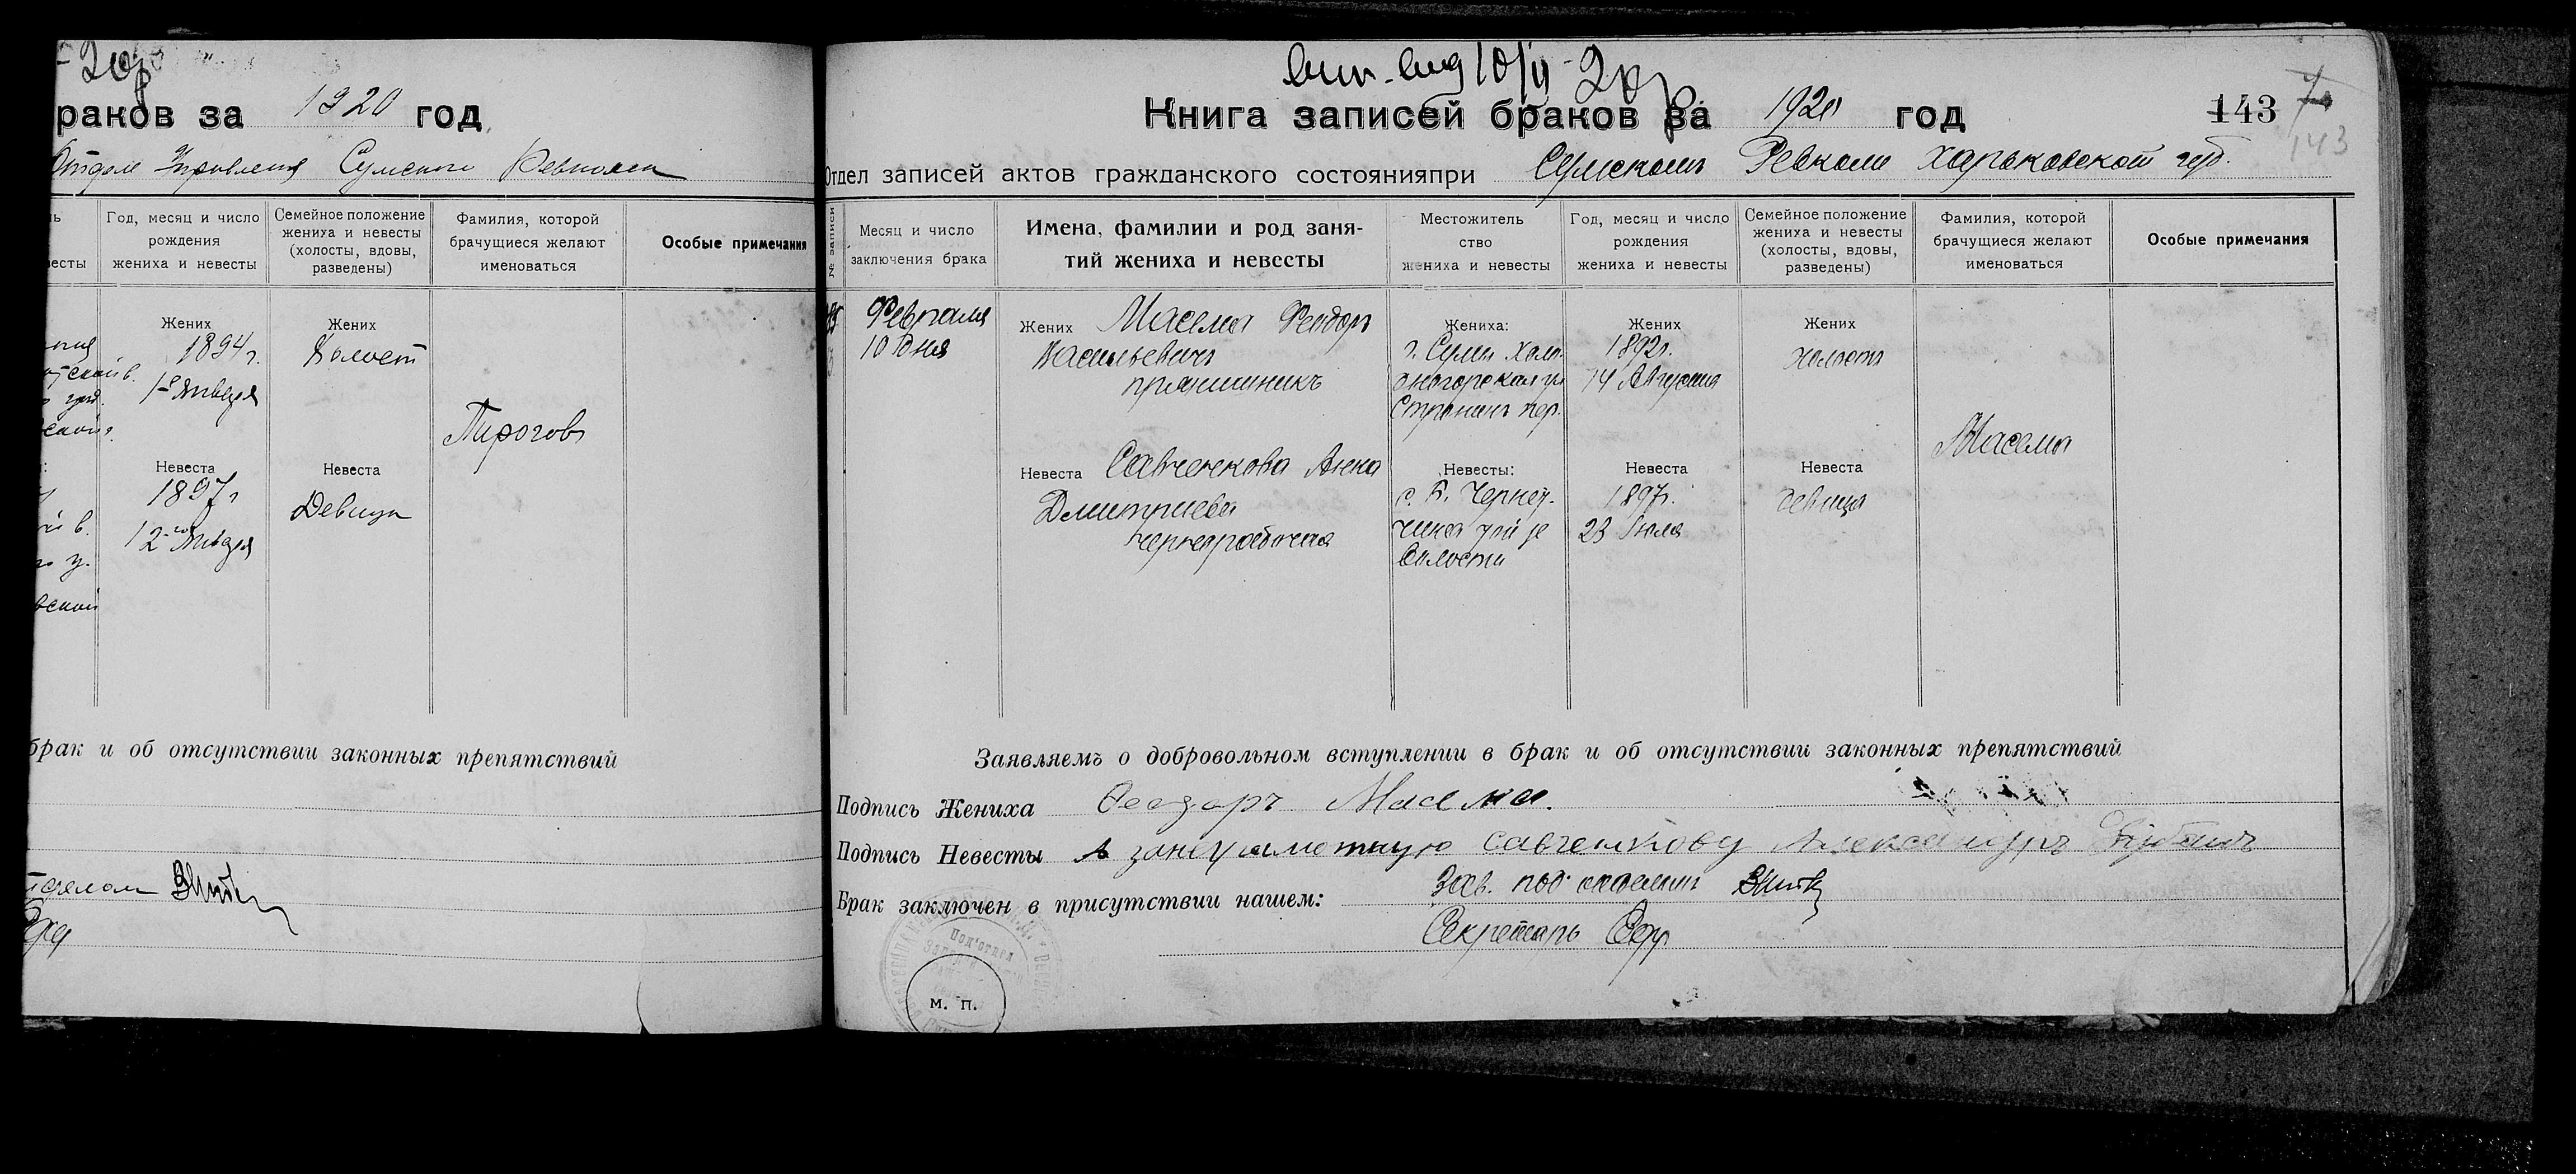 20
раков за 1920 год
Отдел Управления Сумского Ревкома
Год, месяц и число рождения жениха и невесты
Семейное положение жениха и невесты (холосты, вдовы, разведены)
Фамилия, которой брачущиеся желают именоваться
Особые примечания
Жених
1894 г.
1-е Января
Жених
Холост
Пирогов
Невеста
1897 г
12-го Января
Невеста
Девица
брак и об отсутствии законных препятствий
Книга записей браков за 1920 год
143
143
Отдел записей актов гражданского состояния при Сумском Ревкоме Харьковской губ.
№ записи
Месяц и число заключения брака
Имена, фамилии и род занятий жениха и невесты
Местожительство жениха и невесты
Год, месяц и число рождения жениха и невесты
Семейное положение жениха и невесты (холосты, вдовы, разведены)
Фамилия, которой брачущиеся желают именоваться
Особые примечания
Февраля
10 дня
Жених Масема Феодоръ
Васильевичъ
пряничникъ
Жениха:
г. Сумы Холо-
дногорская ул
Жених
1892 г.
14 Августа
Жених
холостъ
Масема
Невеста Савченкова Анна
Дмитриева
чернорабочая
Невесты:
с. В. Чернет-
чина той же
волости
Невеста
1897 г.
23 Июля
Невеста
девица
Заявляемъ о добровольном вступлении в брак и об отсутствии законных препятствий
Подпись Жениха Феодоръ Масема.
Подпись Невесты А за неграмотную Савченкову Александръ
Брак заключен в присутствии нашем: Зав. подотделом
Секретарь
Под'отдел
м. п.